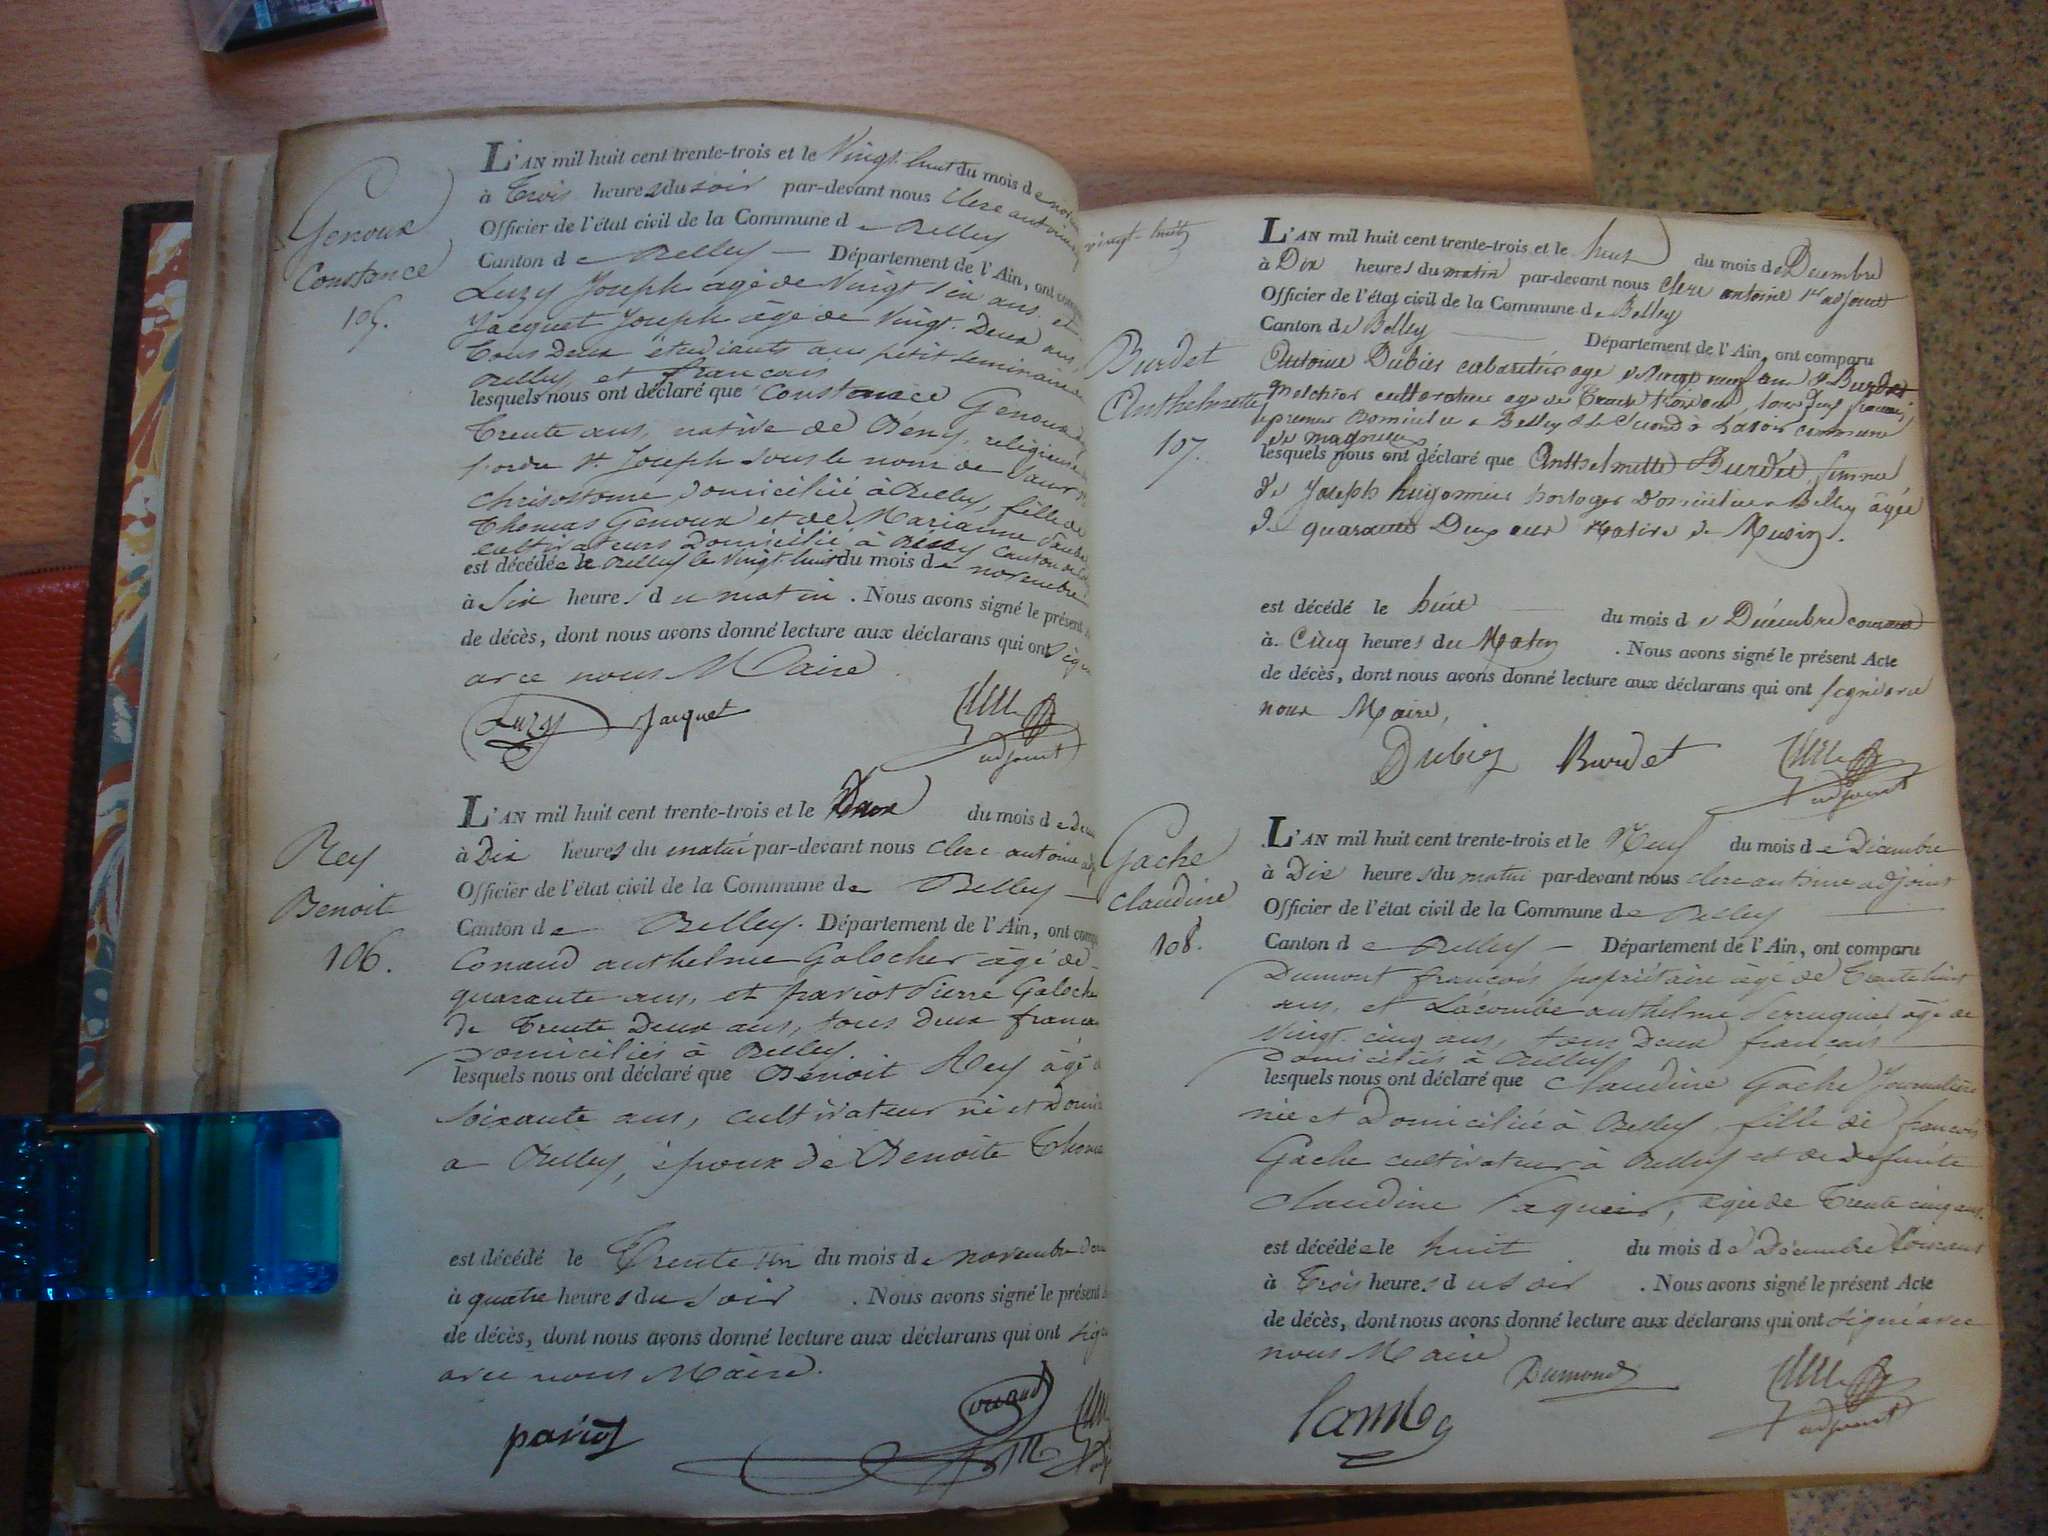 Genoux
Constance
105.
L'AN mil huit cent trente-trois et le Vingt huit du mois de
à Trois heures du soir par-devant nous Clerc antoine
Officier de l'état civil de la Commune de Belley
Canton de Belley — Département de l'Ain, ont
Luzy Joseph agé de Vingt Six ans et
Jacquet Joseph âge de Vingt Deux ans,
Tous Deux étudiants au petit Seminaire
Belley et francais
lesquels nous ont déclaré que Constance Genoux
Trente ans, native de Bény, religieuse
l'ordre St. Joseph sous le nom de Saur
chrisostome, Domiciliée à Belley, fille de
Thomas Genoux et de Marianne
cultivateurs Domicilié à Beny Canton de
est décédée à Belley le Vingt huit du mois de novembre
à Six heures du matin . Nous avons signé le présent
de décès, dont nous avons donné lecture aux déclarans qui ont signé
avec nous Maire
Luzy Jacquet
adjoint
Rey
Benoit
106.
L'AN mil huit cent trente-trois et le Deux du mois de
à Dix heures du matin par-devant nous clerc antoine
Officier de l'état civil de la Commune de Belley —
Canton de Belley. Département de l'Ain, ont
Conand anthelme Galocher âgé de
quarante ans, et pariot Pierre Galocher
de Trente Deux ans, tous Deux francais
Domiciliés à Belley.
lesquels nous ont déclaré que Benoit Rey âgé
Soixante ans, cultivateur né et
a Belley, époux de Benoite
est décédé le Trente un du mois de novembre
à quatre heures du Soir . Nous avons signé le présent
de décès, dont nous avons donné lecture aux déclarans qui ont signé
avec nous Maire.
pariot conand
vingt-huit
Burdet
Anthelmette
107.
L'AN mil huit cent trente-trois et le huit du mois de Décembre
à Dix heures du matin par-devant nous Clerc antoine 1er adjoint
Officier de l'état civil de la Commune de Belley
Canton de Belley — Département de l'Ain, ont comparu
Antoine Dubiez cabaretier age de Vingt neuf ans et Burdet
Melchior cultivateur age de Trente trois ans, tous Deux francais,
le premier Domicilié a Belley & le Second à commune
de magnieu
lesquels nous ont déclaré que Anthelmette Burdet, femme
de Joseph hugonnier horloger Domicilié a Belley âgée
de quarante Deux ans Native de Musin.
est décédé le huit — du mois de Décembre courant
à Cinq heures du Matin . Nous avons signé le présent Acte
de décès, dont nous avons donné lecture aux déclarans qui ont signé avec
nous Maire,
Dubiez Burdet
adjoint
Gache
claudine
108.
L'AN mil huit cent trente-trois et le Neuf du mois de Décembre
à Dix heures du matin par-devant nous clerc antoine adjoint
Officier de l'état civil de la Commune de Belley —
Canton de Belley — Département de l'Ain, ont comparu
Dumont francois propriétaire âgé de Trente huit
ans, et Lacombe anthelme Perruquier âgé de
Vingt cinq ans, tous Deux francais
Domiciliés à Belley
lesquels nous ont déclaré que Claudine Gache Journalière
née et Domiciliée à Belley, fille de francois
Gache cultivateur à Belley et de defunte
Claudine , agée de Trente cinq ans.
est décédée le huit du mois de Décembre Courant
à Trois heures du soir . Nous avons signé le présent Acte
de décès, dont nous avons donné lecture aux déclarans qui ont signé avec
nous Maire
Dumond
adjoint